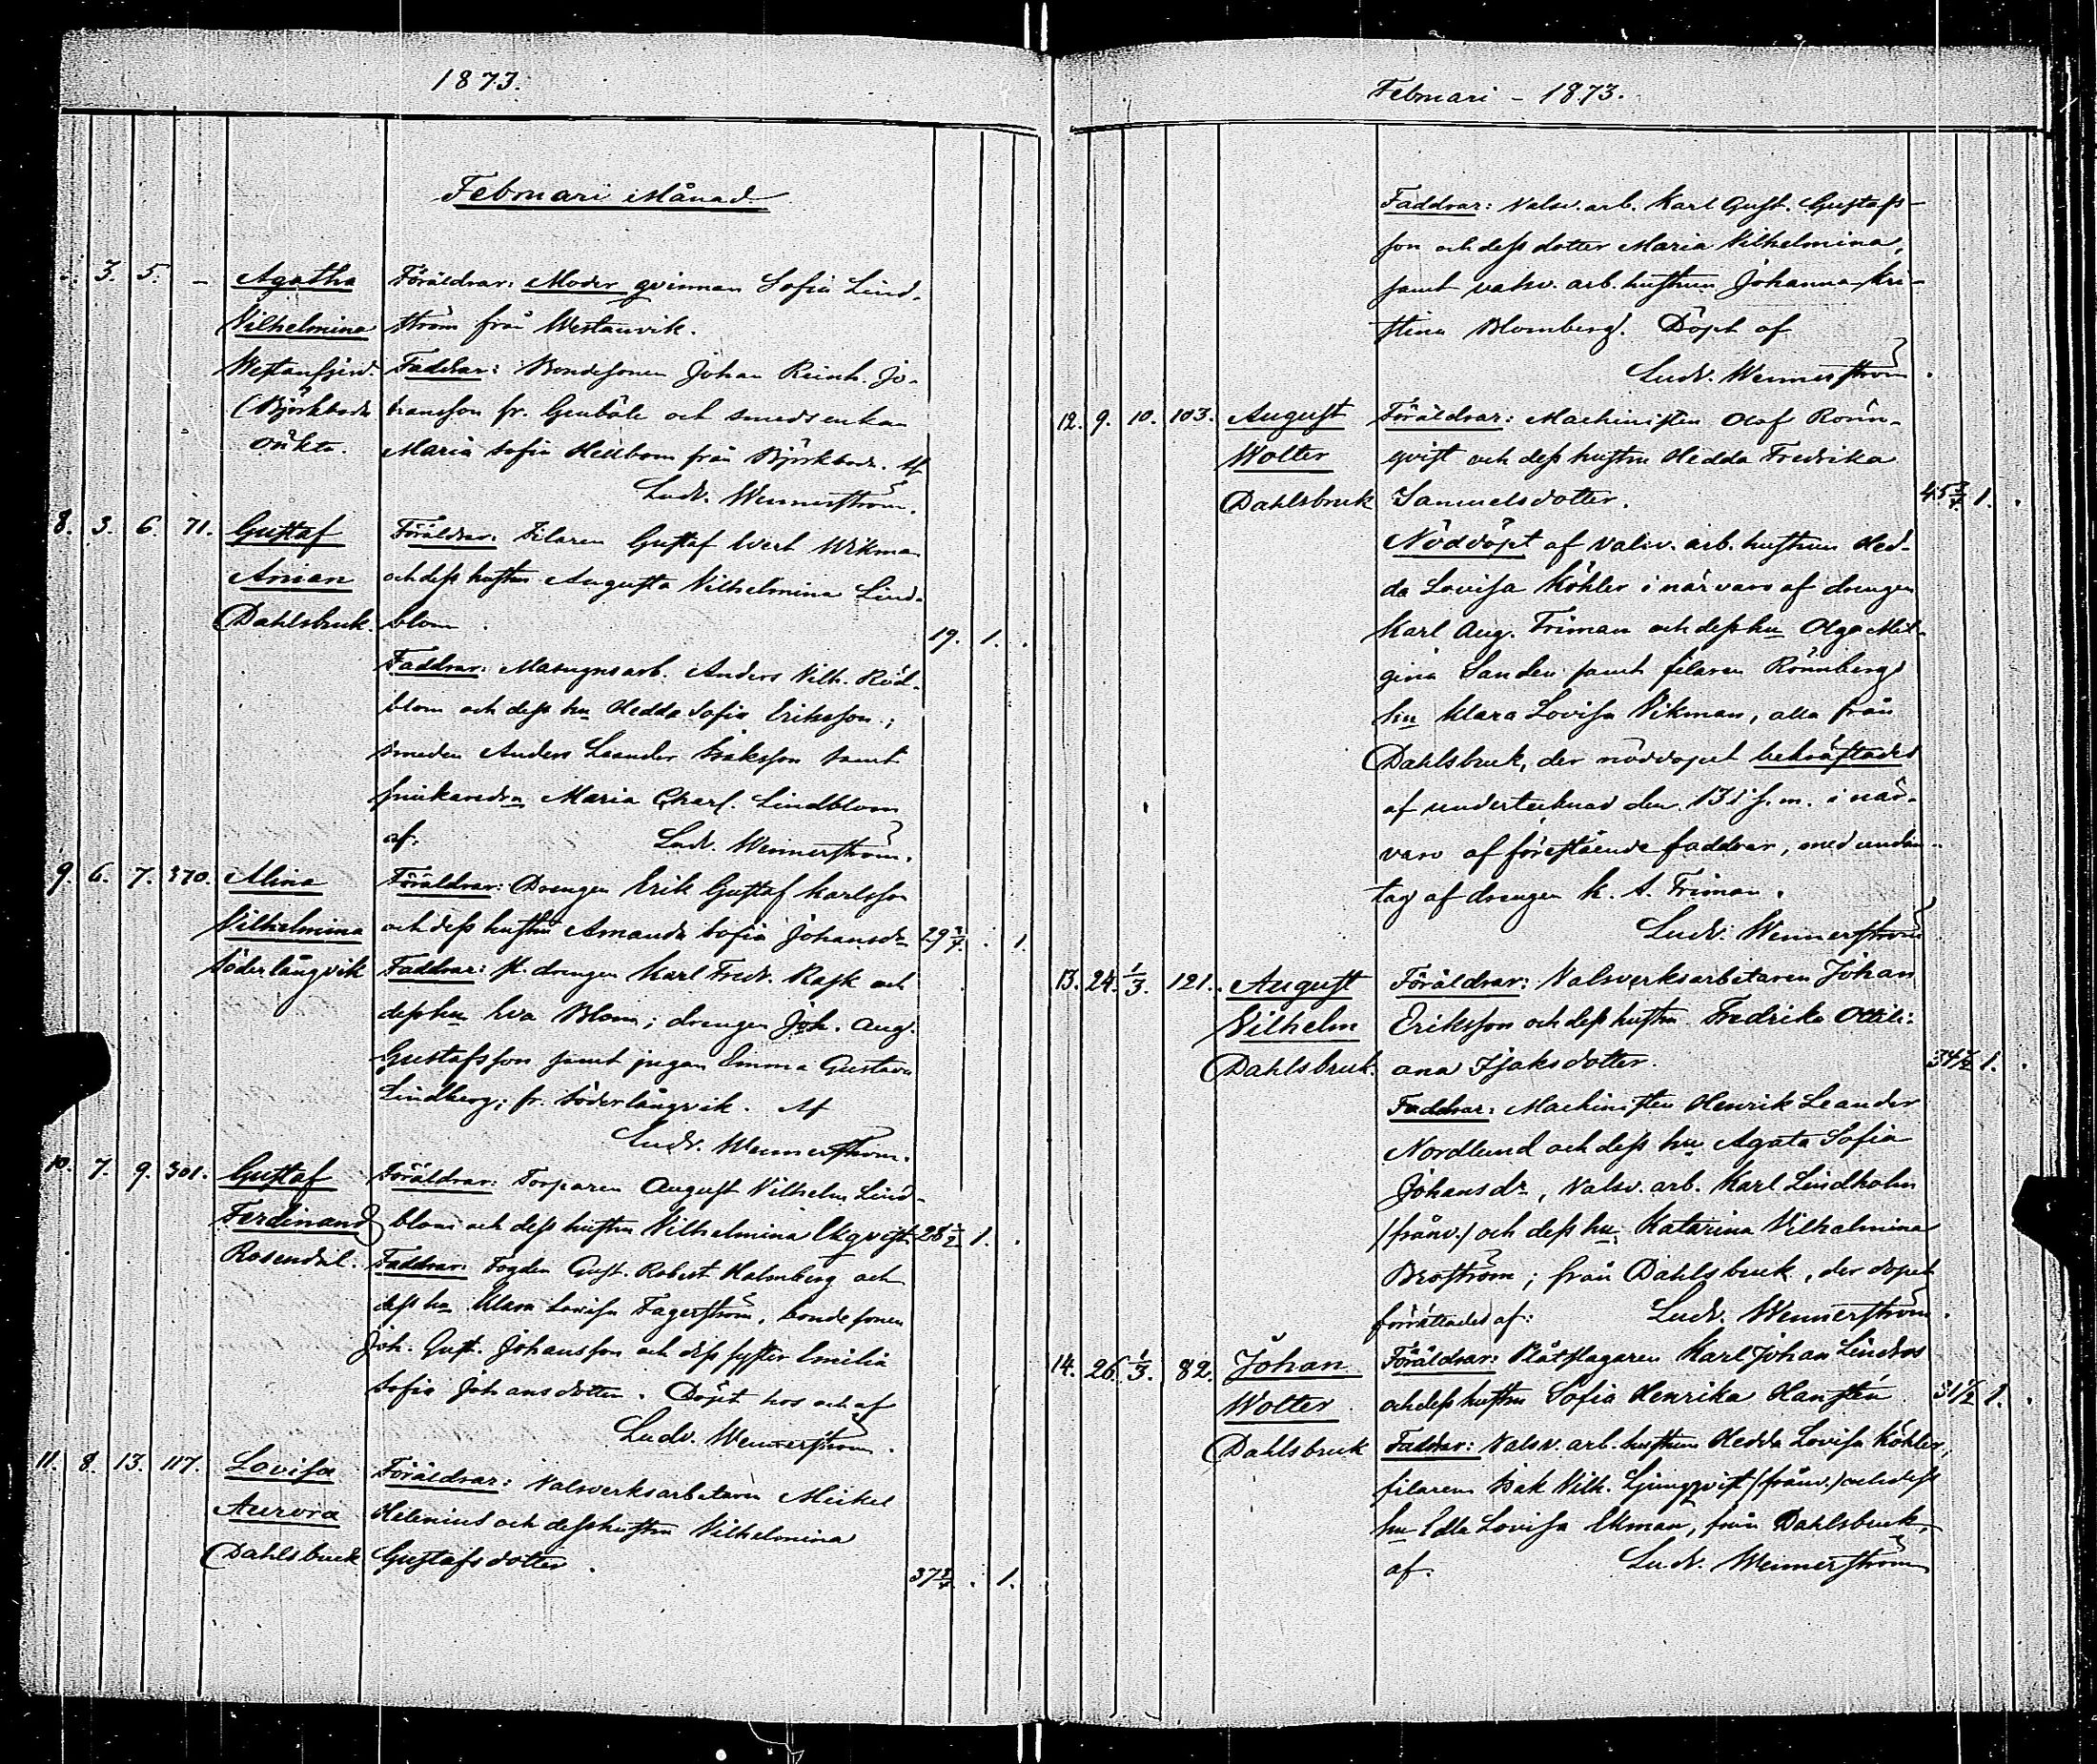 1873.
Februari Månad.
3. 5. – Agatha Föräldrar: Moder qvinnan Sofia Lind-
Vilhelmina ström från Westanvik.
Westanfjerd. Faddrar: Bondesonen Johan Reinh. Jo-
(Björkboda hansson fr. Genböle och smedsenkan
oäkta. Maria Sofia Hellbom från Björkboda. Af
Ludv. Wennerström.
8. 3. 6. 71. Gustaf Föräldrar: Filaren Gustaf Evert Wikman
Anian och dess hustru Augusta Vilhelmina Lind-
Dahlsbruk. blom. 19. 1. .
Faddrar: Masugnsarb. Anders Vilh. Röd-
blom och dess hu Hedda Sofia Eriksson;
smeden Anders Leander Isaksson samt
snickaredr Maria Charl. Lindblom
af. Ludv. Wennerström.
9. 6. 7. 370. Alina Föräldrar: Drengen Erik Gustaf Karlsson
Vilhelmina och dess hustru Amanda Sofia Johansdr 29 3/4 . 1.
Söderlångvik Faddrar: st. drengen Karl Fredr. Rask och
dess hu Eva Blom; drengen Joh. Aug.
Gustafsson samt pigan Emma Gustava
Lindberg; fr. Söderlångvik. Af
Ludv. Wennerström.
10. 7. 9. 301. Gustaf Föräldrar: Torparen August Vilhelm Lind-
Ferdinand blom och dess hustru Vilhelmina Ekqvist 28 1/2 1. .
Rosendal. Faddrar: Fogden Gust. Robert Holmberg och
dess hu Klara Lovisa Fagerström, bondesonen
Joh. Gust. Johansson och dess syster Emilia
Sofia Johansdotter. Döpt hos och af
Ludv. Wennerström.
11. 8. 13. 117. Lovisa Föräldrar: Valsverksarbetaren Mickel
Aurora Helenius och dess hustru Vilhelmina
Dahlsbruk Gustafsdotter. 37 3/4 . 1.
Februari – 1873.
Faddrar: Valsv. arb. Karl Gust. Gustafs-
son och dess dotter Maria Vilhelmina,
samt valsv. arb. hustrun Johanna Kri-
stina Blomberg. Döpt af
Ludv. Wennerström.
12. 9. 10. 103. August Föräldrar: Machinisten Olof Rönn-
Wolter qvist och dess hustru Hedda Fredrika
Dahlsbruk Samuelsdotter. 45 3/4 1. .
Nöddöpt af valsv. arb. hustrun Hed-
da Lovisa Köhler i närvaro af drengen
Karl Aug. Friman och dess hu Olga
Sanden samt filaren Rönnbergs
hu Klara Lovisa Vikman, alla från
Dahlsbruk, der nöddopet bekräftades
af undertecknad den 13 i s. m. i när-
varo af förestående faddrar, med undan-
tag af drengen K. A. Friman.
Ludv. Wennerström
13. 24. 1/3. 121. August Föräldrar: Valsverksarbetaren Johan
Vilhelm Eriksson och dess hustru Fredrika Ottili-
Dahlsbruk. ana Isaksdotter. 34 1/2 1. .
Faddrar: Machinisten Henrik Leander
Nordlund och dess hu Agata Sofia
Johansdr, Valsv. arb. Karl Lindholm
/frånv./ och dess hu Katarina Vilhelmina
Broström; från Dahlsbruk, der dopet
förrättades af: Ludv. Wennerström.
14. 26. 1/3. 82. Johan Föräldrar: Plåtslagaren Karl Johan Lindros
Wolter och dess hustru Sofia Henrika Hanstén 31 1/2 1. .
Dahlsbruk Faddrar: Valsv. arb. hustrun Hedda Lovisa Köhler,
filaren Isak Vilh. Ljungqvist /frånv./ och dess
hu Edla Lovisa Ekman, från Dahlsbruk,
af. Ludv. Wennerström